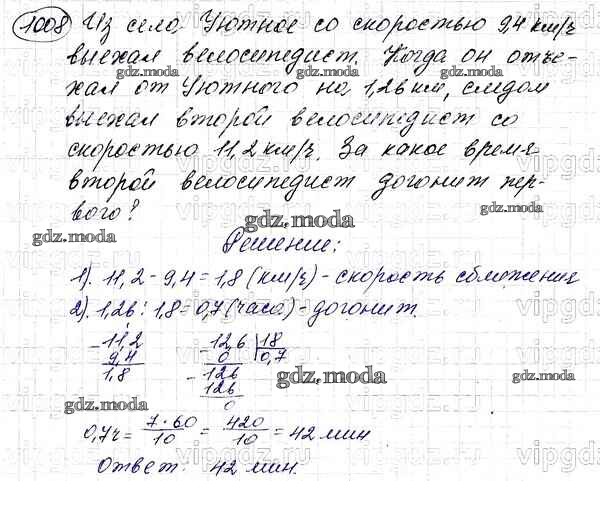 1008 Из села Уютное со скоростью 9,4 км/ч
выехал велосипедист. Когда он отъе-
хал от Уютного на 1,26 км, следом
выехал второй велосипедист со
скоростью 11,2 км/ч. За какое время
второй велосипедист догонит пер-
вого?
Решение:
1). 11,2 - 9,4 = 1,8 (км/ч) - скорость сближения
2). 1,26 : 1,8 = 0,7 (часа) - догонит.
- 11,2
9,4
1,8
- 12,6 | 18
0 | 0,7
- 126
126
0
0,7ч = 7·60/10 = 420/10 = 42 мин
Ответ: 42 мин.
gdz.moda
vipgdz